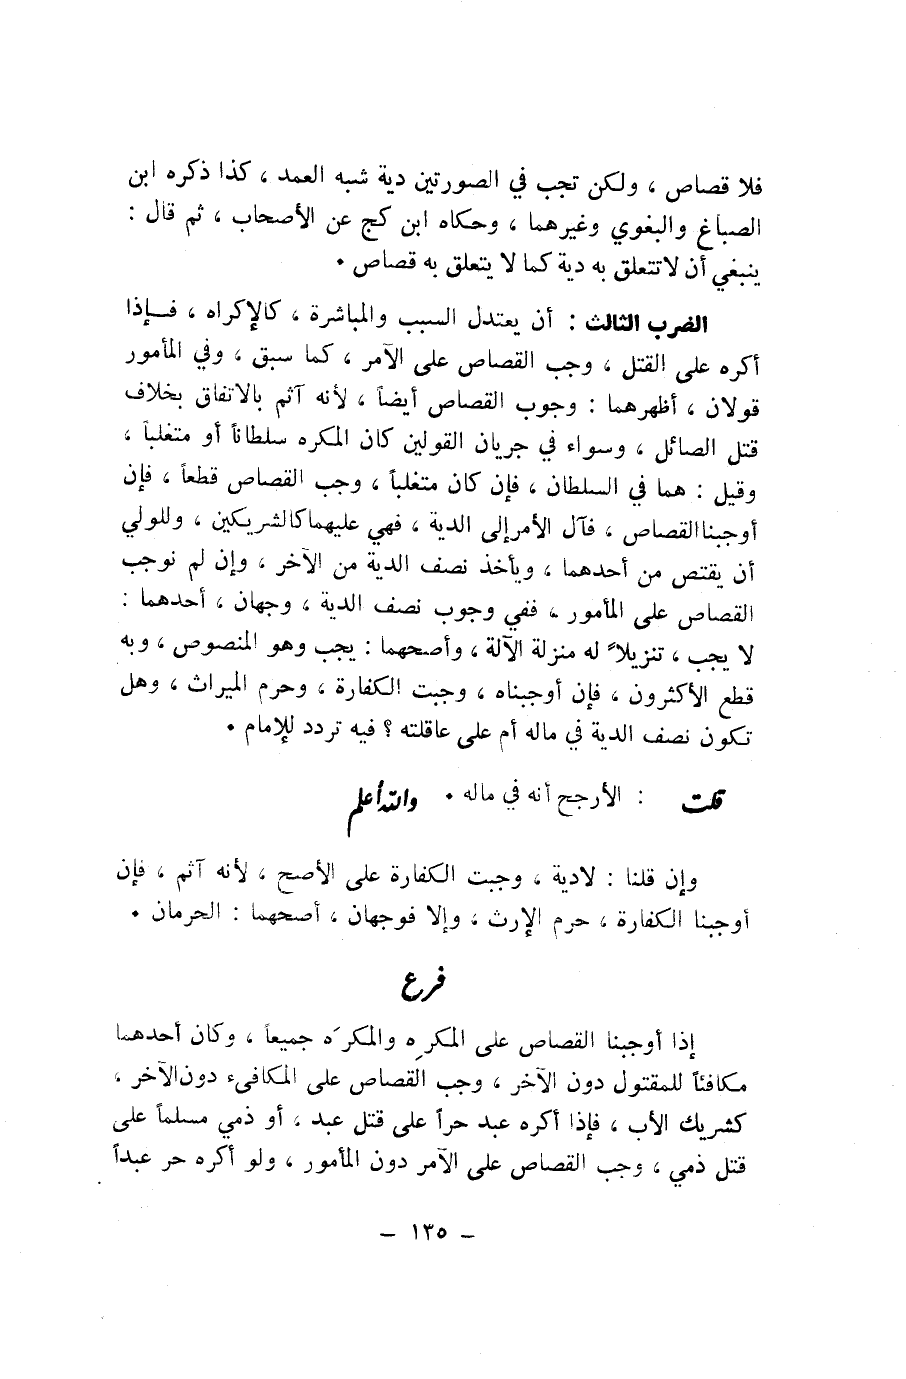 فلا قصاص ، ولكن تجب في الصورتين دية شبه العمد ، كذا ذكره ابن
الصباغ والبغوي وغيرهما ، وحكاه ابن كج عن الأصحاب ، ثم قال :
ينبغي أن لاتتعلق به دية كما لا يتعلق به قصاص .
الضرب الثالث : أن يعتدل السبب والمباشرة ، كالإكراه ، فإذا
أكره على القتل ، وجب القصاص على الآمر ، كما سبق ، وفي المأمور
قولان ، أظهرهما : وجوب القصاص أيضاً ، لأنه آثم بالاتفاق بخلاف
قتل الصائل ، وسواء في جريان القولين كان المكره سلطاناً أو متغلباً ،
وقيل : هما في السلطان ، فإن كان متغلباً ، وجب القصاص قطعاً ، فإن
أوجبنا القصاص ، فآل الأمر إلى الدية ، فهي عليهما كالشريكين ، وللولي
أن يقتص من أحدهما ، ويأخذ نصف الدية من الآخر ، وإن لم نوجب
القصاص على المأمور ، ففي وجوب نصف الدية ، وجهان ، أحدهما :
لا يجب ، تنزيلاً له منزلة الآلة ، وأصحهما : يجب وهو المنصوص ، وبه
قطع الأكثرون ، فإن أوجبناه ، وجبت الكفارة ، وحرم الميراث ، وهل
تكون نصف الدية في ماله أم على عاقلته ؟ فيه تردد للإمام .
قلت : الأرجح أنه في ماله . والله أعلم
وإن قلنا : لادية ، وجبت الكفارة على الأصح ، لأنه آثم ، فإن
أوجبنا الكفارة ، حرم الإرث ، وإلا فوجهان ، أصحهما : الحرمان .
فرع
إذا أوجبنا القصاص على المكرِه والمكرَه جميعاً ، وكان أحدهما
مكافئاً للمقتول دون الآخر ، وجب القصاص على المكافىء دون الآخر ،
كشريك الأب ، فإذا أكره عبد حراً على قتل عبد ، أو ذمي مسلماً على
قتل ذمي ، وجب القصاص على الآمر دون المأمور ، ولو أكره حر عبداً
– ١٣٥ –